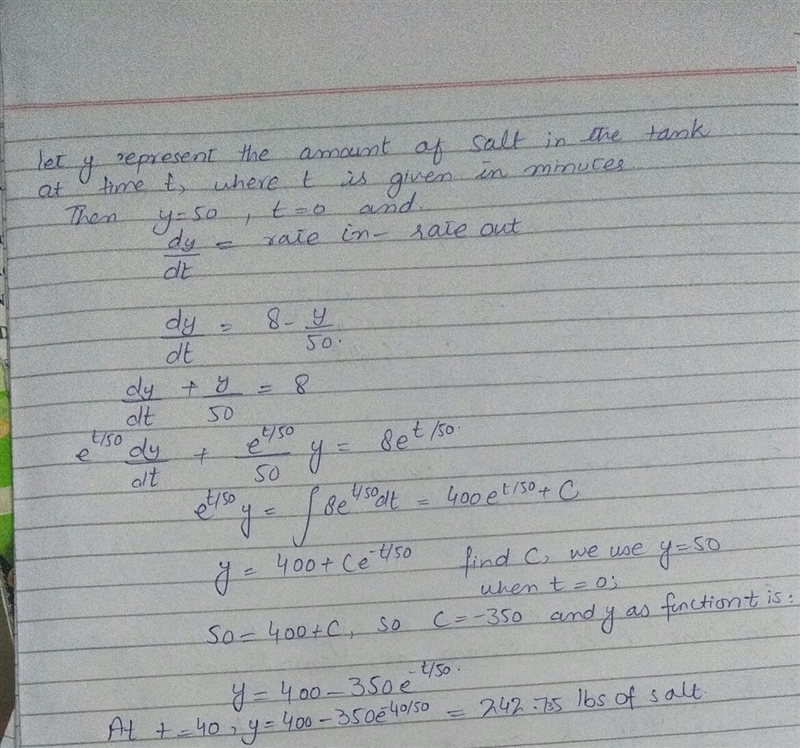 let y represent the amount of salt in the tank
at time t, where t is given in minutes
Then y=50, t=0 and.
dy/dt = rate in - rate out
dy/dt = 8 - y/50.
dy/dt + y/50 = 8
e^{t/50} dy/dt + e^{t/50}/50 y = 8e^{t/50}.
e^{t/50} y = ∫ 8e^{t/50} dt = 400e^{t/50} + C
y = 400 + Ce^{-t/50} find C, we use y=50
when t=0;
50 = 400 + C, so C = -350 and y as function t is:
y = 400 - 350e^{-t/50}.
At t=40, y = 400 - 350e^{-40/50} = 242.735 lbs of salt.